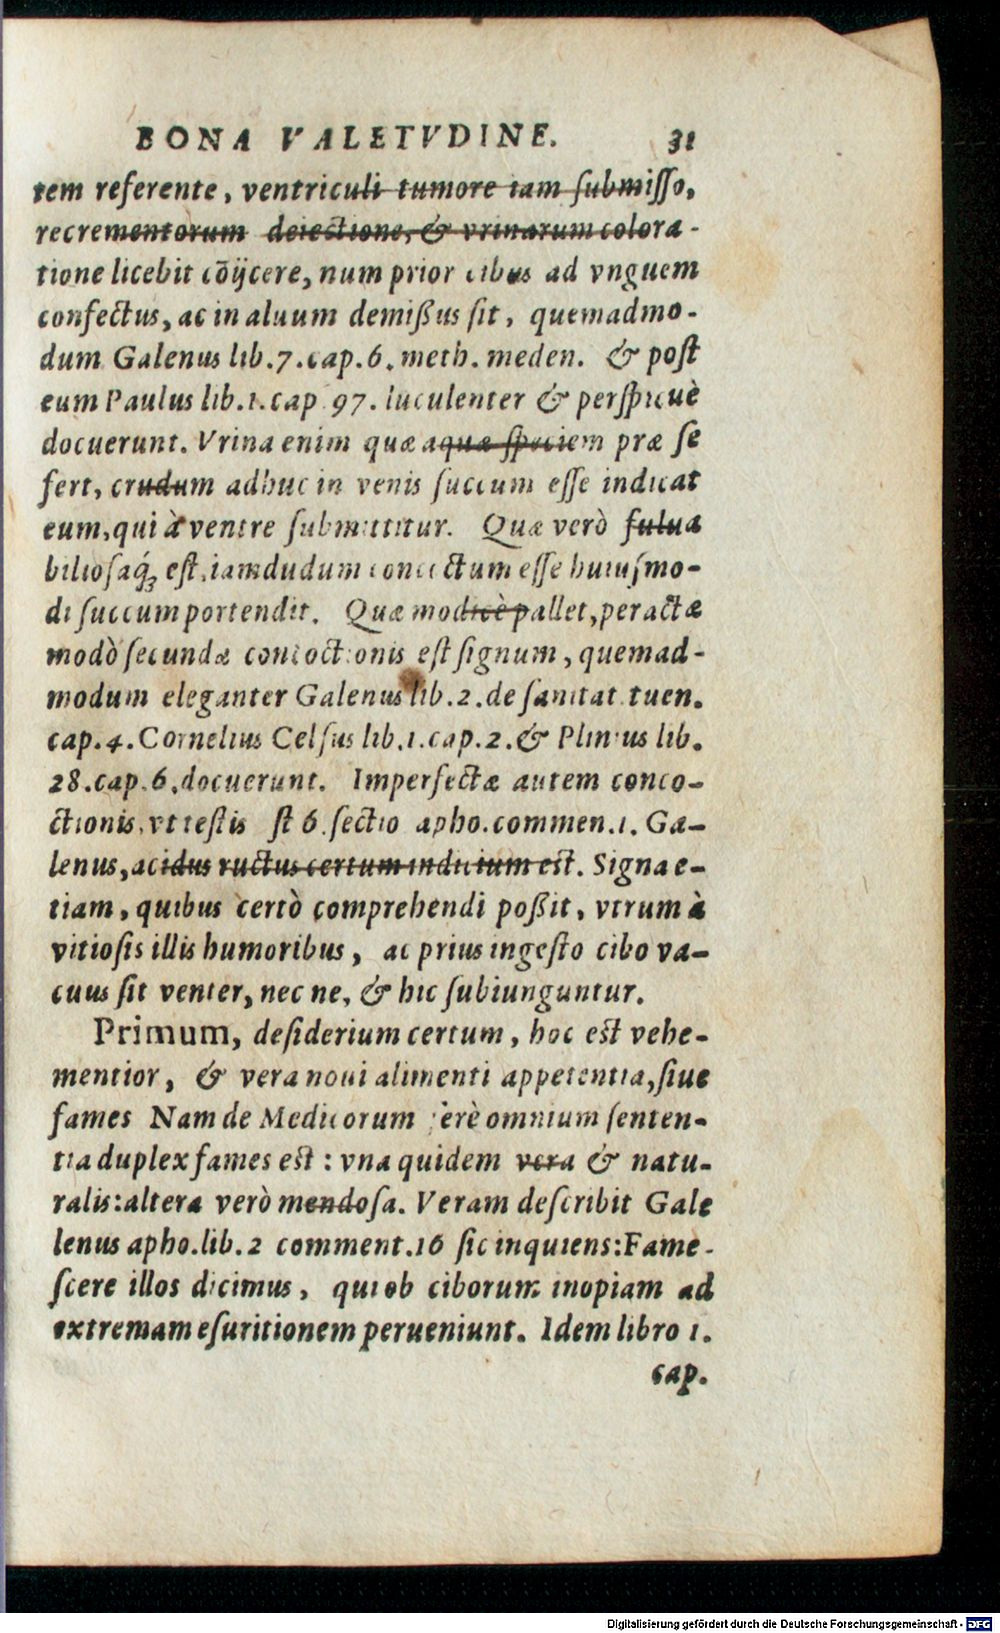 BONA VALETVDINE. 31
tem referente, ventriculi tumore iam submisso,
recrementorum deiectione, & vrinarum colora-
tione licebit cōijcere, num prior cibus ad vnguem
confectus, ac in aluum demißus sit, quemadmo-
dum Galenus lib.7.cap.6. meth. meden. & post
eum Paulus lib.1.cap.97. luculenter & perspicuè
docuerunt. Vrina enim quæ aquæ speciem præ se
fert, crudum adhuc in venis succum esse indicat
eum, qui à ventre submittitur. Quæ verò fulua
biliosaq́; est, iamdudum concoctum esse huiusmo-
di succum portendit. Quæ modicè pallet, peractæ
modò secundæ concoctionis est signum, quemad-
modum eleganter Galenus lib.2.de sanitat.tuen.
cap.4.Cornelius Celsus lib.1.cap.2.& Plinius lib.
28.cap.6.docuerunt. Imperfectæ autem conco-
ctionis, vt testis st 6.sectio apho.commen.1. Ga-
lenus, acidus ructus certum indicium est. Signa e-
tiam, quibus certò comprehendi poßit, vtrum à
vitiosis illis humoribus, ac prius ingesto cibo va-
cuus sit venter, nec ne, & hic subiunguntur.
Primum, desiderium certum, hoc est vehe-
mentior, & vera noui alimenti appetentia, siue
fames Nam de Medicorum ferè omnium senten-
tia duplex fames est : vna quidem vera & natu-
ralis: altera verò mendosa. Veram describit Gale
lenus apho.lib.2 comment.16 sic inquiens: Fame-
scere illos dicimus, qui ob ciborum inopiam ad
extremam esuritionem perueniunt. Idem libro 1.
cap.
Digitalisierung gefördert durch die Deutsche Forschungsgemeinschaft - DFG